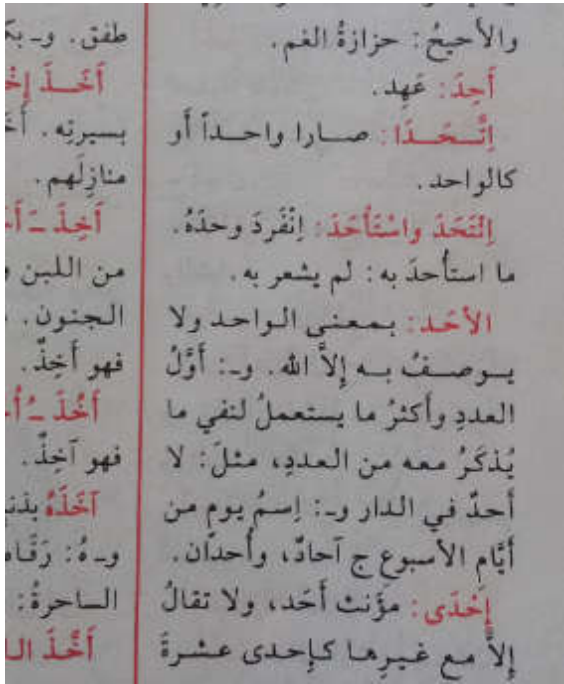 والأحيحُ: حزازةُ الغم.
أَحِدَ: عَهِد.
اِتَّـحَـدَا: صـارا واحـداً أو
كالواحد.
اِئْتَحَدَ واسْتَأْحَدَ: اِنْفَردَ وحدَهُ.
ما استأحدَ به: لم يشعر به.
الأحَد: بـمعنى الواحد ولا
يـوصـفُ بـه إلاَّ الله. وـ: أَوَّلُ
العددِ وأكثرُ ما يستعملُ لنفي ما
يُذكَرُ معه من العددِ، مثلَ: لا
أحدٌ في الدار وـ: اِسمُ يومٍ من
أيَّامِ الأسبوع ج آحادٌ، وأُحدان.
إحْدَى: مؤنث أَحَد، ولا تقالُ
إلاَّ مع غيرِها كإحدى عشـرةَ
طفق. وـ
أَخَـذَ
بسيرتِه.
منازِلَهم.
أَخِذَ ـَ
من اللبن
الجنون.
فهو أَخِذٌ.
أَخُذَ ـُ
فهو آخِذٌ.
آخَذَهُ
وـهُ:
الساحرةُ:
أَخَّذَ